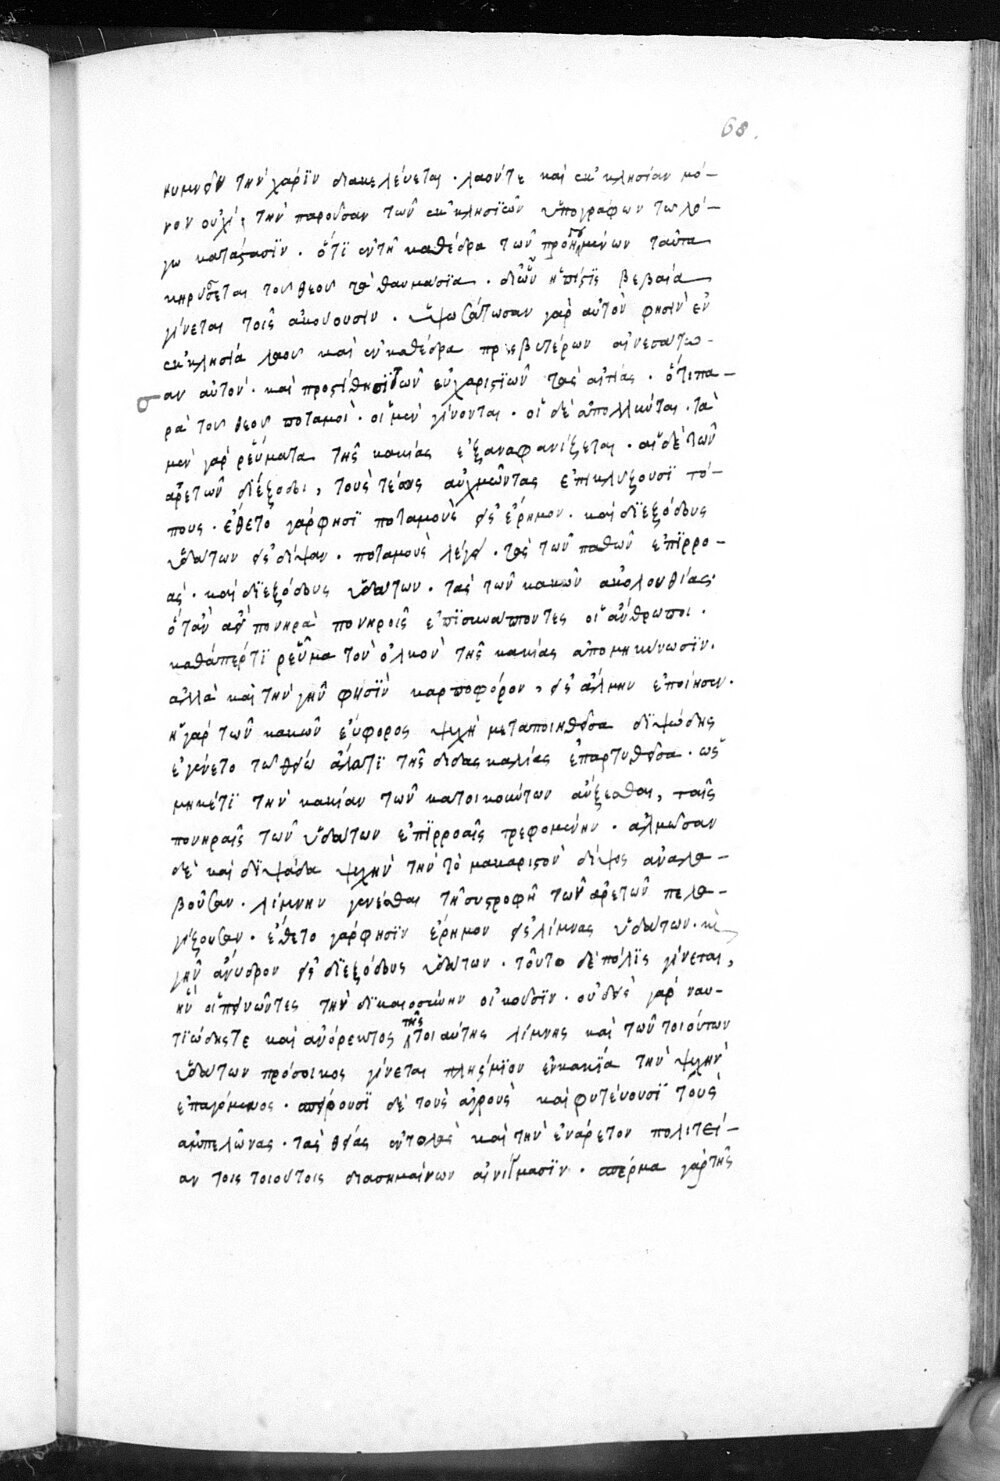 68.
κυμνῶν τὴν χάρϊν διακελεύεται · λαούτε καὶ ἐκκλησίαν μό-
νον οὐχὶ, τὴν παροῦσαν τῶν ἐκκλησϊῶν ὑπογράφων τῶ λό-
γω κατάστασϊν · ὅτϊ ἐν τῆ καθέδρα τῶν προηγουμένων ταῦτα
κηρύσσεται τοῦ θεοῦ τὰ θαυμάσϊα · δϊῶν ἡ πίστϊς βεβαία
γίνεται τοῖς ἀκούουσϊν · ὑψωσάτωσαν γὰρ αὐτὸν φησὶν ἐν
ἐκκλησία λαοῦ καὶ ἐν καθέδρα πρεσβυτέρων αἰνεσάτω-
σαν αὐτόν · καὶ προστίθησϊ τῶν εὐχαριστϊῶν τὰς αἰτίας · ὅτι πα-
ρὰ τοῦ θεοῦ ποταμοὶ · οἱ μὲν γίνονται · οἱ δὲ ἀπόλλυνται · τὰ
μὲν γὰρ ῥεύματα τῆς κακίας ἐξαναφανίζεται · αἱ δὲ τῶν
ἀρετῶν διέξοδοι, τοὺς τέως αὐχμῶντας ἐπικλύζουσϊ τό-
πους · ἔθετο γάρ φησϊ ποταμοὺς εἰς ἔρημον · καὶ δϊεξόδους
ὑδάτων εἰς δίψαν · ποταμοὺς λέγει · τὰς τῶν παθῶν ἐπϊρρο-
ὰς · καὶ δϊεξόδους ὑδάτων · τὰς τῶν κακῶν ἀκολουθίας
ὅταν ἀεὶ πονηρὰ πονηροῖς ἐπϊσυνάπτοντες οἱ ἄνθρωποι ·
καθάπέρτϊ ῥεῦμα τὸν ὁλκὸν τῆς κακίας ἀπομηκύνωσϊν ·
ἀλλὰ καὶ τὴν γῆν φησϊν καρποφόρον, εἰς ἅλμην ἐποίησεν ·
ἡ γὰρ τῶν κακῶν εὔφορος ψυχὴ μεταποιηθεῖσα δϊψώδης
ἐγένετο τῶ θείω ἅλατϊ τῆς διδασκαλίας ἐπαρτυθεῖσα · ὡς
μηκέτϊ τὴν κακίαν τῶν κατοικούντων αὔξεσθαι, ταῖς
πονηραῖς τῶν ὑδάτων ἐπϊρροαῖς τρεφομένην · ἁλμῶσαν
δὲ καὶ δϊψάδα ψυχὴν τὴν τὸ μακαριστὸν δίψος ἀναλα-
βοῦσαν · λίμνην γενέσθαι τῆ συστροφῆ τῶν ἀρετῶν πελα-
γίζουσαν · ἔθετο γάρ φησϊν ἔρημον εἰς λίμνας ὑδάτων · καὶ
γῆν ἄνυδρον εἰς δϊεξόδους ὑδάτων · τοῦτο δὲ πόλϊς γίνεται,
ἣν οἱ πεινῶντες τὴν δϊκαιοσύνην οἰκοῦσϊν · οὐδεὶς γὰρ ναυ-
τϊώδηςτε καὶ ἀνόρεκτος τῆς τοιαύτης λίμνης καὶ τῶν τοιούτων
ὑδάτων πρόσοικος γίνεται πλησμϊον ἐν κακϊα τὴν ψυχὴν
ἐπαγόμενος · σπείρουσϊ δὲ τοὺς ἀγροὺς καὶ φυτεύουσϊ τοὺς
ἀμπελῶνας · τὰς θείας ἐντολὰς καὶ τὴν ἐνάρετον πολιτεί-
αν τοῖς τοιούτοις διασημαίνων αἰνίγμασϊν · σπέρμα γὰρ τῆς